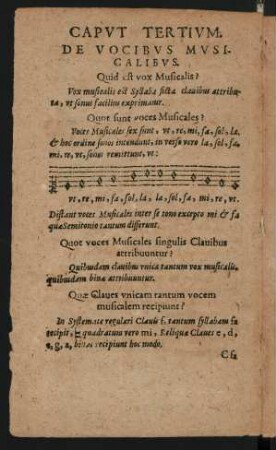 CAPVT TERTIVM.
DE VOCIBVS MVSI-
CALIBVS.
Quid est vox Musicalis?
Vox musicalis est Syllaba ficta clauibus attribu-
ta, vt sonus facilius exprimatur.
Quot sunt voces Musicales?
Voces Musicales sex sunt, vt, re, mi, fa, sol, la.
& hoc ordine sonos intendunt, in verso vero la, sol, fa,
mi, re, vt, sonos remittunt, vt:
vt, re, mi, fa, sol, la, la, sol, fa, mi, re, vt.
Distant voces Musicales inter se tono excepto mi & fa
quæ Semitonio tantum differunt.
Quot voces Musicales singulis Clauibus
attribuuntur?
Quibusdam clauibus vnica tantum vox musicalis,
quibusdam binæ attribuuntur.
Quæ Claues vnicam tantum vocem
musicalem recipiunt?
In Systemate regulari Clauis f. tantum syllabam fa
recipit, ♮ quadratum vero mi, Reliquæ Claues c, d,
e, g, a, binas recipiunt hoc modo.